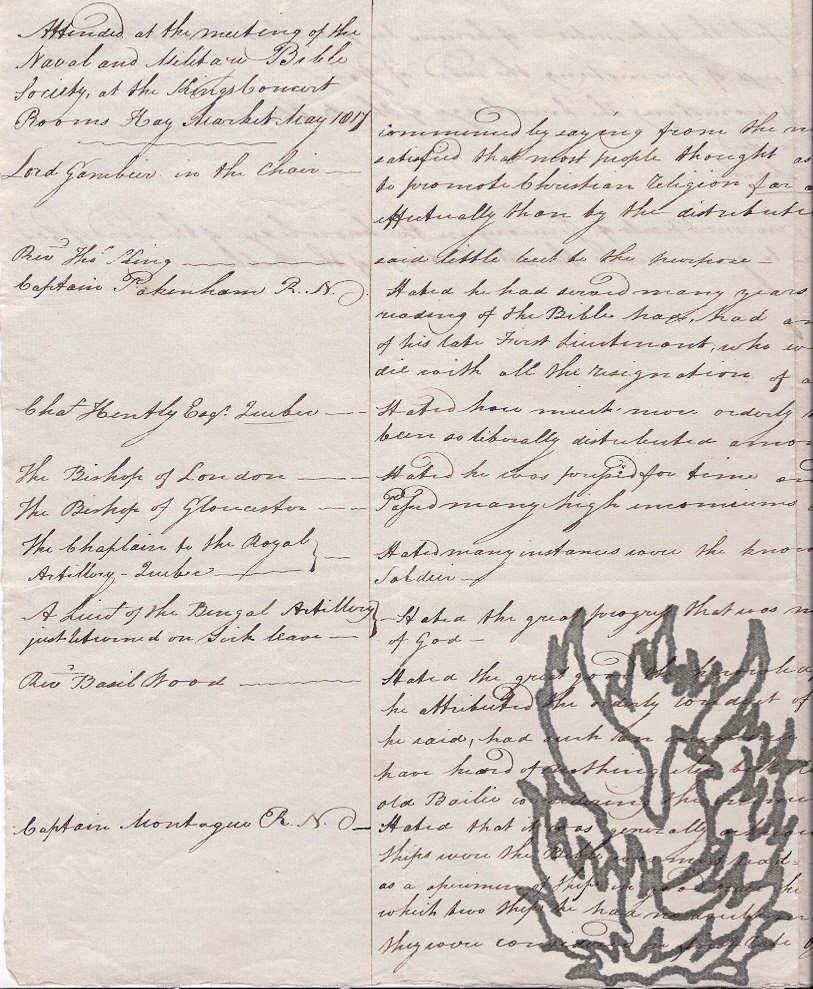 Attended at the meeting of the
Naval and Militare Bible
Society, at the Kings Concert
Rooms Hay Market May 1817
Lord Gambier in the Chair
commenced by saying from the
satisfied that most people thought as
to promote Christian religion far
effectually than by the distributi
Revd. Thos. King
said little but to the purpose
Captain Pakenham R. N.
Stated he had served many years
reading of the Bible has, had an
of his late First Lieutenant, who
die with all the resignation of a
Chas. Hently Esqr. Quebec
Stated how much more orderly
been so liberally distributed amon
The Bishop of London
Stated he was for time an
The Bishop of Gloucester
Passed many high incomiums
The Chaplain to the Royal
Artillery - Quebec
Stated many instances were the know
Soldier
A Lieut. of the Bengal Artillery
just returned on Sick leave
Stated the great progress that was
of God
Revd. Basil Wood
Stated the great good the knowled
he attributed the orderly conduct of
he said, had such an
have heard of nothing
old Bailie
Captain Montague R. N.
Stated that it was generally
Ships were the Bible
as a specimen of Ships in
which two Ships he had no doubt
they were considered in first rate